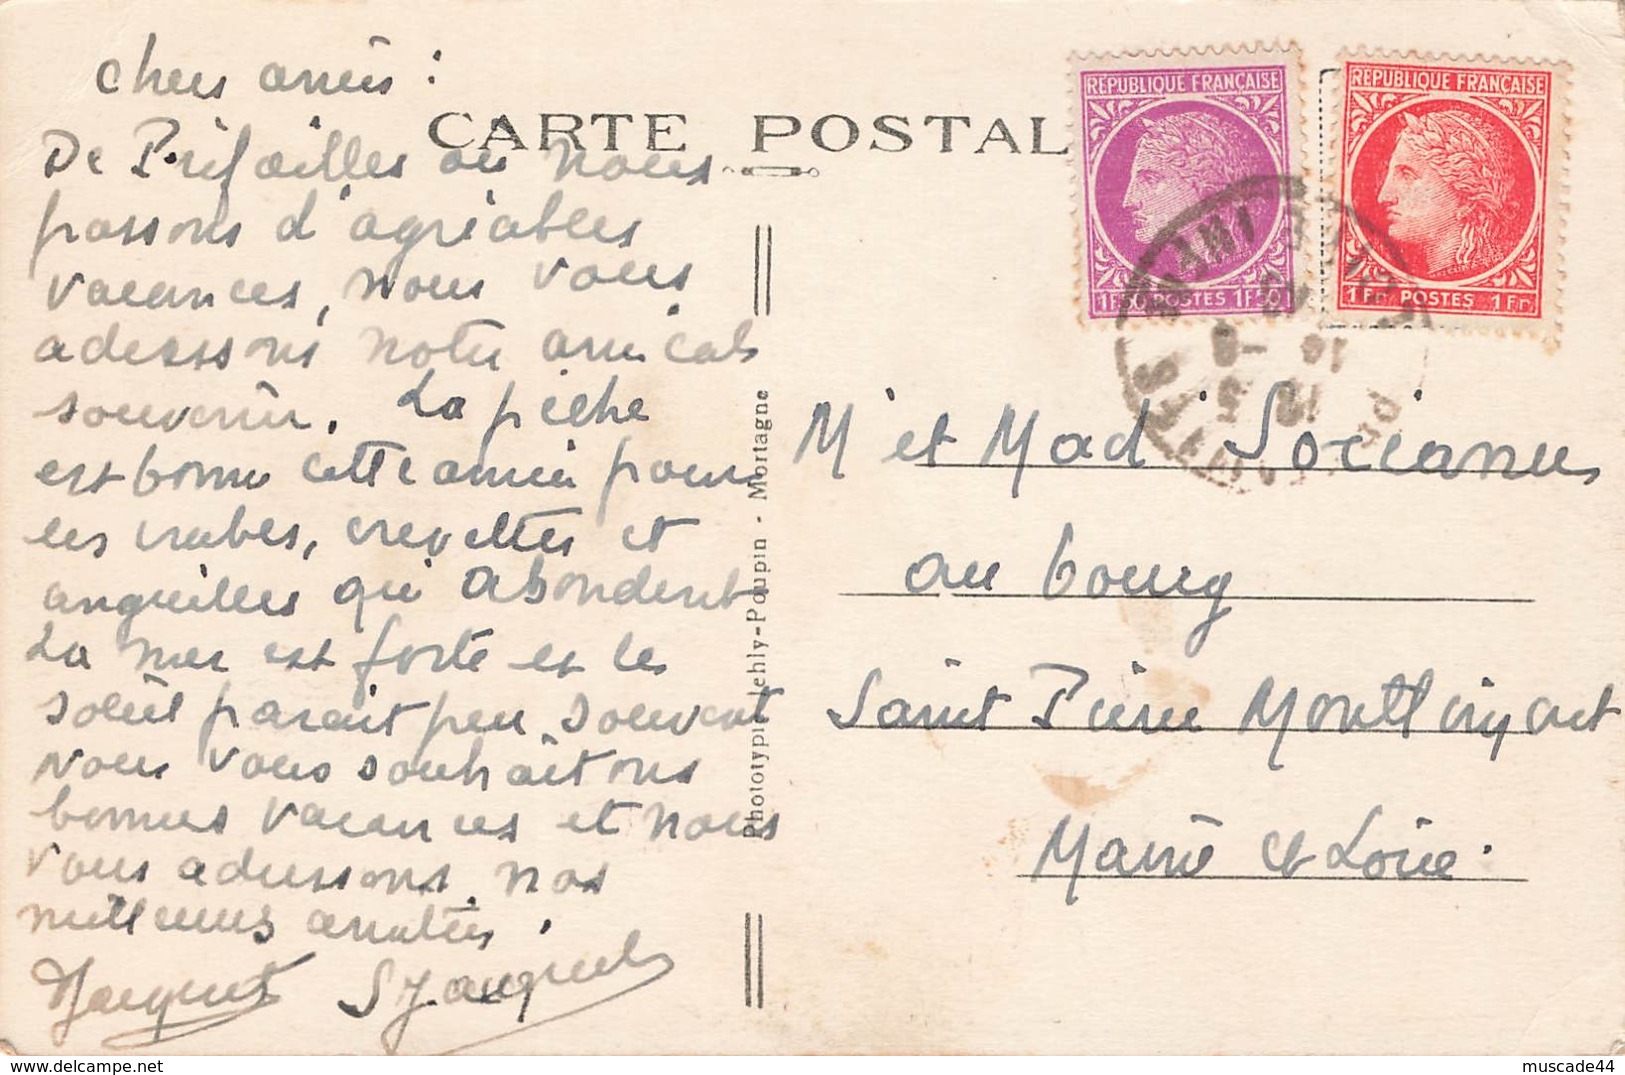 chers amis :
CARTE POSTAL
De Préfailles où nous
passons d'agréables
vacances, nous vous
adressons notre amicals
souvenir. La pêche
est bonne cette année pour
les crabes, crevettes et
anguilles qui abondent
La mer est forte et le
soleil parait peu souvent
Nous vous souhaitons
bonnes vacances et nous
vous adressons nos
meilleures amitiés.
Jacques
Phototypie Lehly-Poupin - Mortagne
REPUBLIQUE FRANÇAISE
1F50 POSTES 1F50
REPUBLIQUE FRANÇAISE
1 Fr. POSTES 1 Fr.
M' et Mad
au bourg
Saint Pierre Montlimart
Maine et Loire.
muscade44